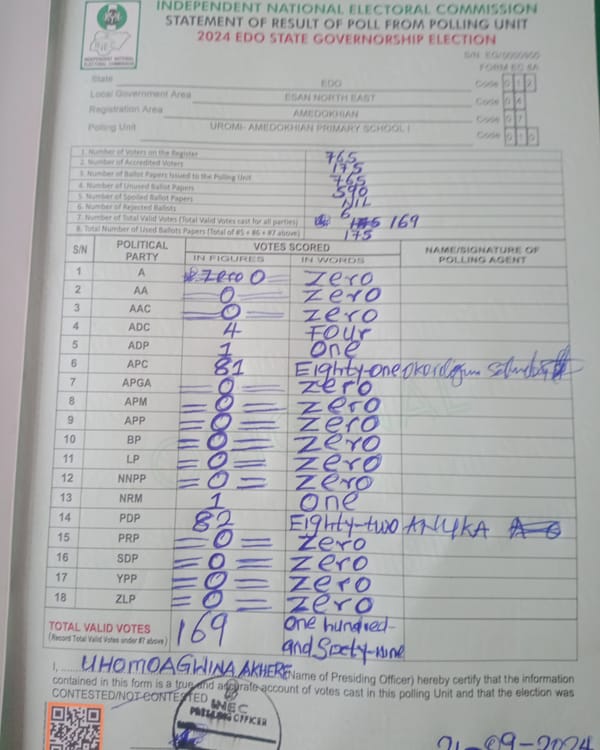 INDEPENDENT NATIONAL ELECTORAL COMMISSION
STATEMENT OF RESULT OF POLL FROM POLLING UNIT
2024 EDO STATE GOVERNORSHIP ELECTION
FORM EC 8A
State EDO Code 0 1 2
Local Government Area ESAN NORTH EAST Code 0 4
Registration Area AMEDOKHIAN Code 0 7
Polling Unit UROMI- AMEDOKHIAN PRIMARY SCHOOL I Code 0 1 0
1. Number of Voters on the Register 765
2. Number of Accredited Voters 175
3. Number of Ballot Papers Issued to the Polling Unit 765
4. Number of Unused Ballot Papers 590
5. Number of Spoiled Ballot Papers NIL
6. Number of Rejected Ballots 6
7. Number of Total Valid Votes (Total Valid Votes cast for all parties) 169
8. Total Number of Used Ballots Papers (Total of #5 + #6 + #7 above) 175
S/N POLITICAL PARTY VOTES SCORED NAME/SIGNATURE OF POLLING AGENT
IN FIGURES IN WORDS
1 A Zero 0 Zero
2 AA 0 Zero
3 AAC 0 Zero
4 ADC 4 Four
5 ADP 1 One
6 APC 81 Eighty-one
7 APGA 0 Zero
8 APM 0 Zero
9 APP 0 Zero
10 BP 0 Zero
11 LP 0 Zero
12 NNPP 0 Zero
13 NRM 1 One
14 PDP 82 Eighty-two
15 PRP 0 Zero
16 SDP 0 Zero
17 YPP 0 Zero
18 ZLP 0 Zero
TOTAL VALID VOTES 169 One hundred-
(Record Total Valid Votes under #7 above) and Sixty-nine
I, UHOMOAGWINA AKHERE (Name of Presiding Officer) hereby certify that the information
contained in this form is a true and accurate account of votes cast in this polling Unit and that the election was
CONTESTED/NOT CONTESTED
INEC
PRESIDING OFFICER
21-09-2024